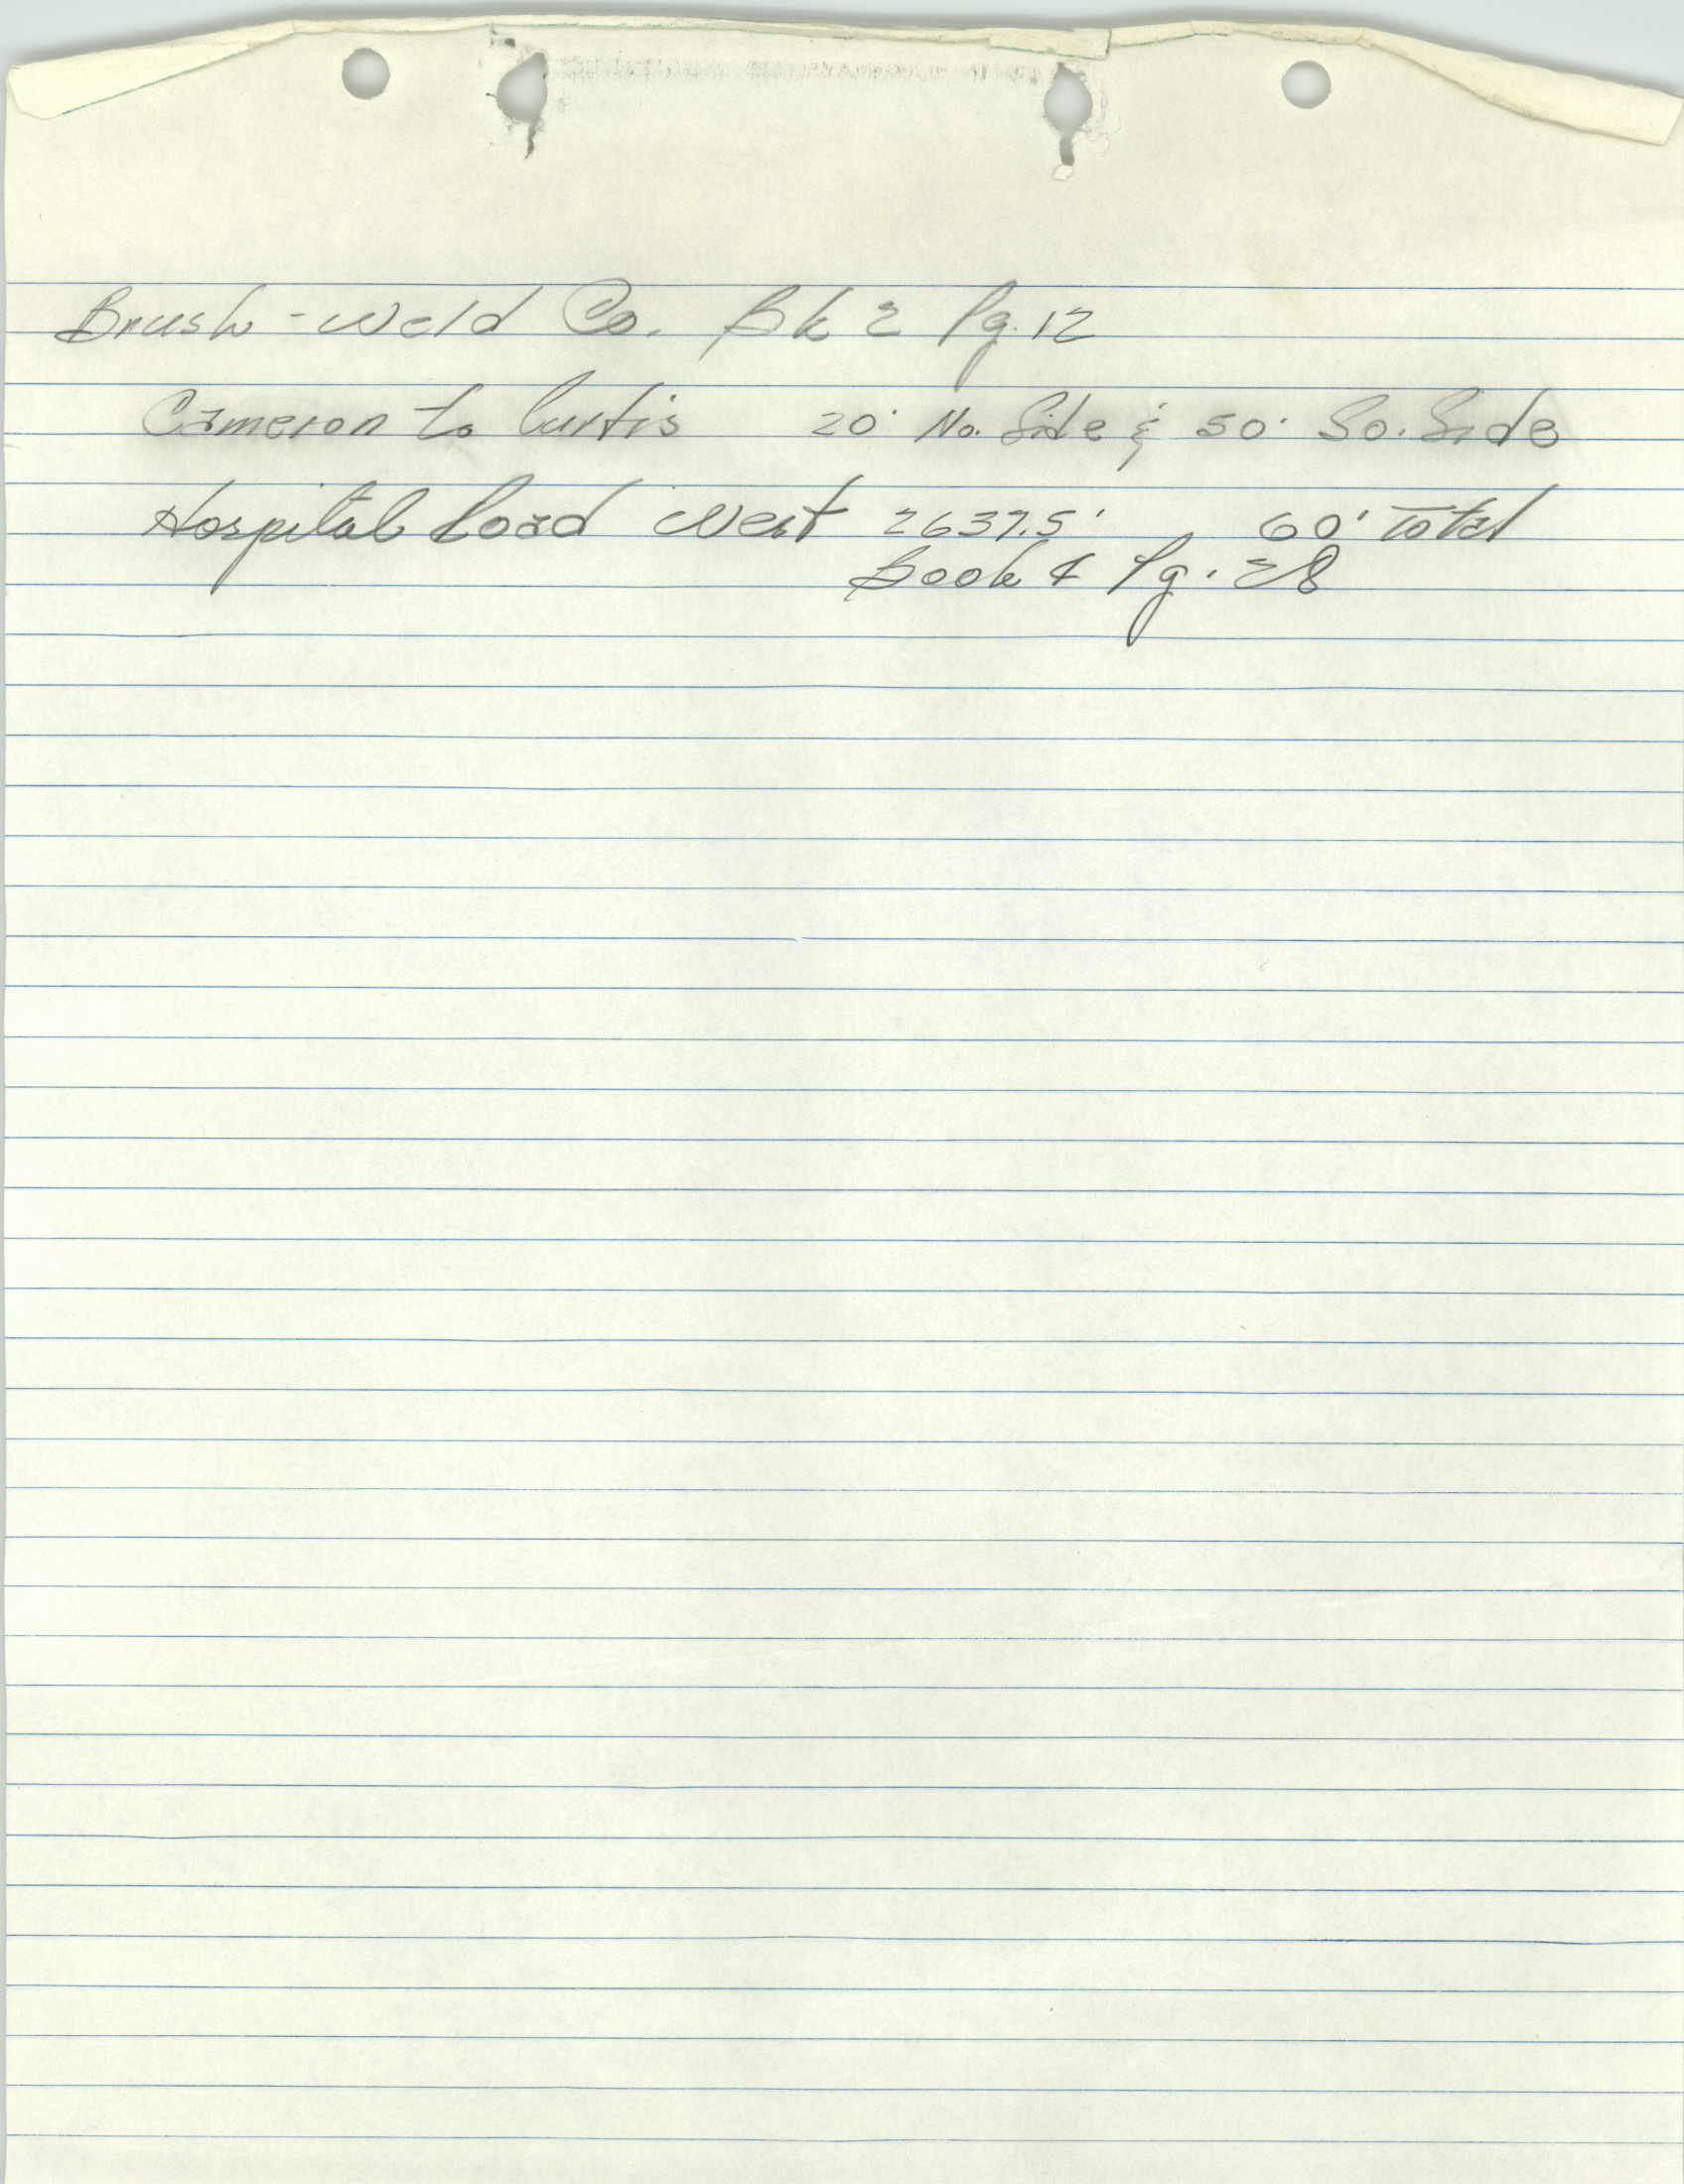 Brush - Weld Co. Bk 2 Pg. 12
Cameron to Curtis 20' No. Side & 50' So. Side
Hospital Road West 2637.5' 60' Total
Book 4 Pg. 28